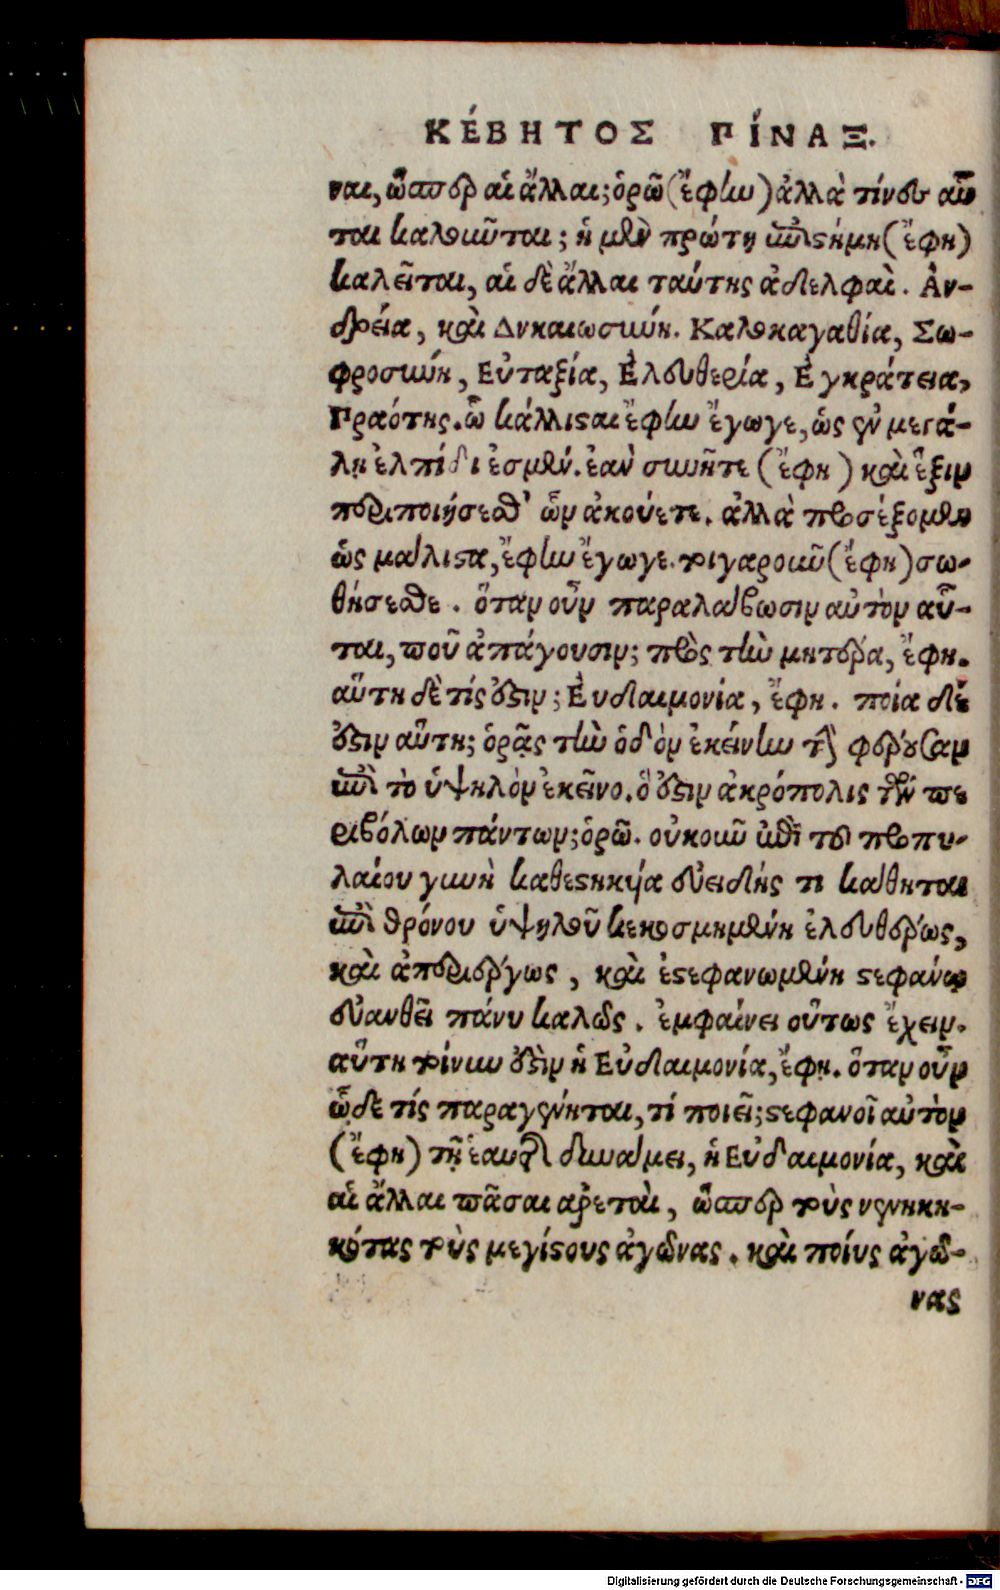 ΚΈΒΗΤΟΣ ΠΊΝΑΞ.
ναι, ὥσπερ αἱ ἄλλαι; ὁρῶ (ἔφην) ἀλλὰ τίνες αὗ
ται καλοῦνται; ἡ μὲν πρώτη ἐπιστήμη (ἔφη)
καλεῖται, αἱ δὲ ἄλλαι ταύτης ἀδελφαὶ. Ἀν-
δρεία, καὶ Δικαιοσύνη. Καλοκαγαθία, Σω-
φροσύνη, Εὐταξία, Ἐλευθερία, Ἐγκράτεια,
Πραότης. ὦ κάλλισται ἔφην ἔγωγε, ὡς ἐν μεγά-
λῃ ἐλπίδι ἐσμὲν. ἐὰν συνῆτε (ἔφη) καὶ ἕξιν
περιποιήσεσθ' ὧν ἀκούετε. ἀλλὰ προσέξομεν
ὡς μάλιστα, ἔφην ἔγωγε. τοιγαροῦν (ἔφη) σω-
θήσεσθε. ὅταν οὖν παραλάβωσιν αὐτὸν αὗ-
ται, ποῦ ἀπάγουσιν; πρὸς τὴν μητέρα, ἔφη.
αὕτη δὲ τίς ἐστιν; Εὐδαιμονία, ἔφη. ποία δέ
ἐστιν αὕτη; ὁρᾷς τὴν ὁδὸν ἐκείνην τὴν φέρουσαν
ἐπὶ τὸ ὑψηλὸν ἐκεῖνο. ὅ ἐστιν ἀκρόπολις τῶν πε
ριβόλων πάντων; ὁρῶ. οὐκοῦν ἐπὶ τοῦ προπυ-
λαίου γυνὴ καθεστηκυῖα εὐειδής τι κάθηται
ἐπὶ θρόνου ὑψηλοῦ κεκοσμημένη ἐλευθέρως,
καὶ ἀπεριέργως, καὶ ἐστεφανωμένη στεφάνῳ
εὐανθεῖ πάνυ καλῶς. ἐμφαίνει οὕτως ἔχειν.
αὕτη τοίνυν ἐστὶν ἡ Εὐδαιμονία, ἔφη. ὅταν οὖν
ὧδε τίς παραγένηται, τί ποιεῖ; στεφανοῖ αὐτὸν
(ἔφη) τῇ ἑαυτῆς δυνάμει, ἡ Εὐδαιμονία, καὶ
αἱ ἄλλαι πᾶσαι ἀρεταὶ, ὥσπερ τοὺς νενικη-
κότας τοὺς μεγίστους ἀγῶνας. καὶ ποίους ἀγῶ-
νας
Digitalisierung gefördert durch die Deutsche Forschungsgemeinschaft - DFG